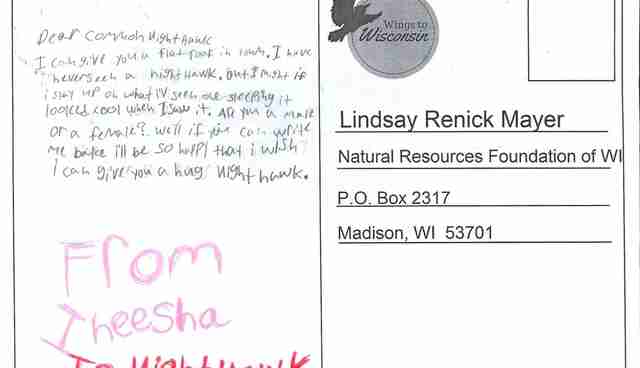 Dear common NightHawk
I can give you a flat roof in tomh. I have
never seen a nightHawk. But I might if
i stay up oh what I'v seen one sleeping it
looked cool when I saw it. Are you a male
or a female? well if you can write
me back I'll be so happy that i wish
I can give you a hug Night hawk.
From
Iheesha
To NightHawk
Wings to
Wisconsin
Lindsay Renick Mayer
Natural Resources Foundation of WI
P.O. Box 2317
Madison, WI 53701